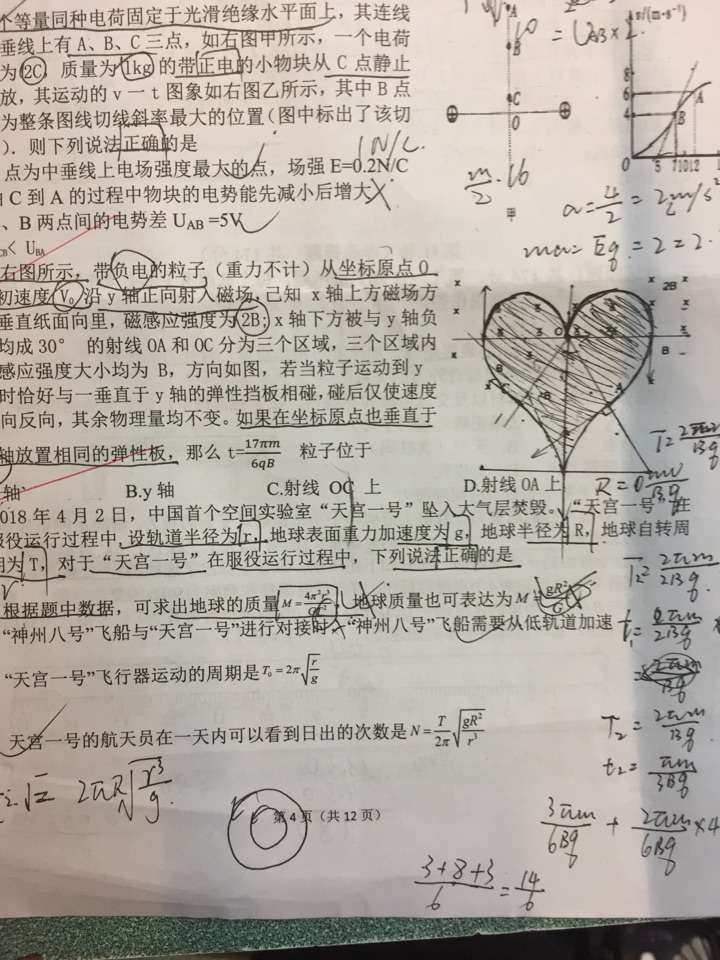 个等量同种电荷固定于光滑绝缘水平面上，其连线
垂线上有 A、B、C 三点，如右图甲所示，一个电荷
为 2C，质量为 1kg 的带正电的小物块从 C 点静止
放，其运动的 v－t 图象如右图乙所示，其中 B 点
为整条图线切线斜率最大的位置（图中标出了该切
）. 则下列说法正确的是
1N/C.
点为中垂线上电场强度最大的点，场强 E=0.2N/C
C 到 A 的过程中物块的电势能先减小后增大
、B 两点间的电势差 UAB =5V
CB< UBA
A
B
C
O
甲
v/(m·s⁻¹)
8
6
4
0
5 7 10 12
B
A
m/2 · 16
a = 4/2 = 2 m/s²
ma = Eq = 2 = 2·
右图所示，带负电的粒子（重力不计）从坐标原点 O
初速度 V₀ 沿 y 轴正向射入磁场，己知 x 轴上方磁场方
垂直纸面向里，磁感应强度为 2B；x 轴下方被与 y 轴负
均成 30° 的射线 OA 和 OC 分为三个区域，三个区域内
感应强度大小均为 B，方向如图，若当粒子运动到 y
时恰好与一垂直于 y 轴的弹性挡板相碰，碰后仅使速度
向反向，其余物理量均不变。如果在坐标原点也垂直于
轴放置相同的弹性板，那么 t=17πm/6qB 粒子位于
轴 B.y 轴 C.射线 OC 上 D.射线 OA 上
2B
B
O
C
A
R = mv/Bq
018 年 4 月 2 日，中国首个空间实验室“天宫一号”坠入大气层焚毁。“天宫一号”在
服役运行过程中，设轨道半径为 r，地球表面重力加速度为 g，地球半径为 R，地球自转周
期为 T，对于“天宫一号”在服役运行过程中，下列说法正确的是
根据题中数据，可求出地球的质量 地球质量也可表达为
“神州八号”飞船与“天宫一号”进行对接时，“神州八号”飞船需要从低轨道加速
“天宫一号”飞行器运动的周期是 T₀ = 2π√(r/g)
天宫一号的航天员在一天内可以看到日出的次数是 N = T/2π √(gR²/r³)
T₂ = 2πm/Bq
t₂ = πm/3Bq
3πm/6Bq + 2πm/6Bq ×4
(3+8+3)/6 = 14/6
第 4 页（共 12 页）